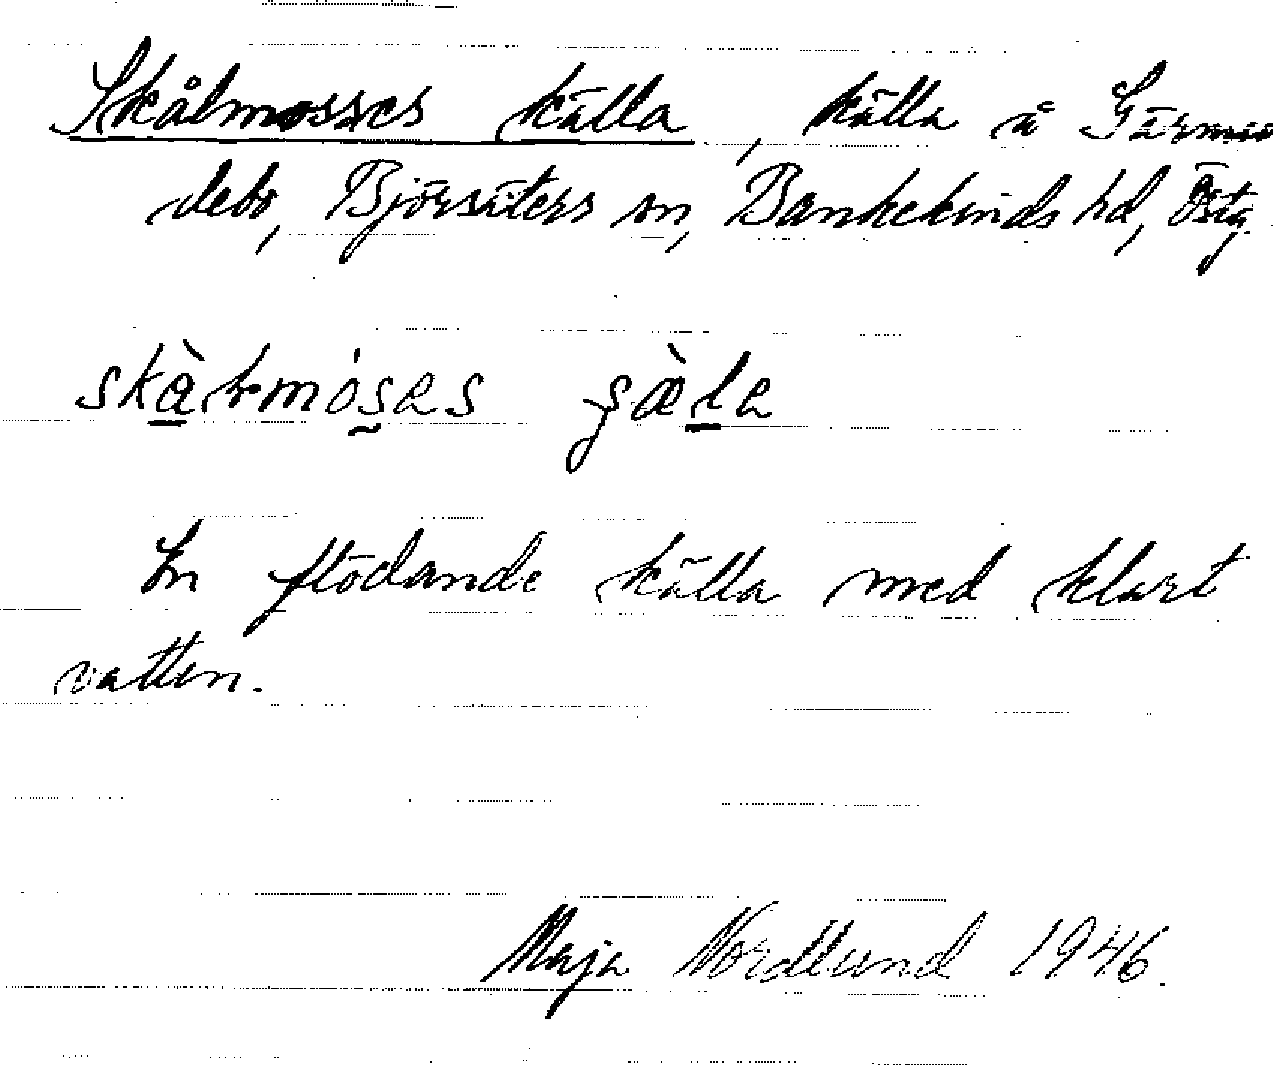 Skålmosses källa, källa å Gärmun
debo, Björsäters sn, Bankekinds hd, Östg.
En flödande källa med klart
vatten.
Maja Nordlund 1946.